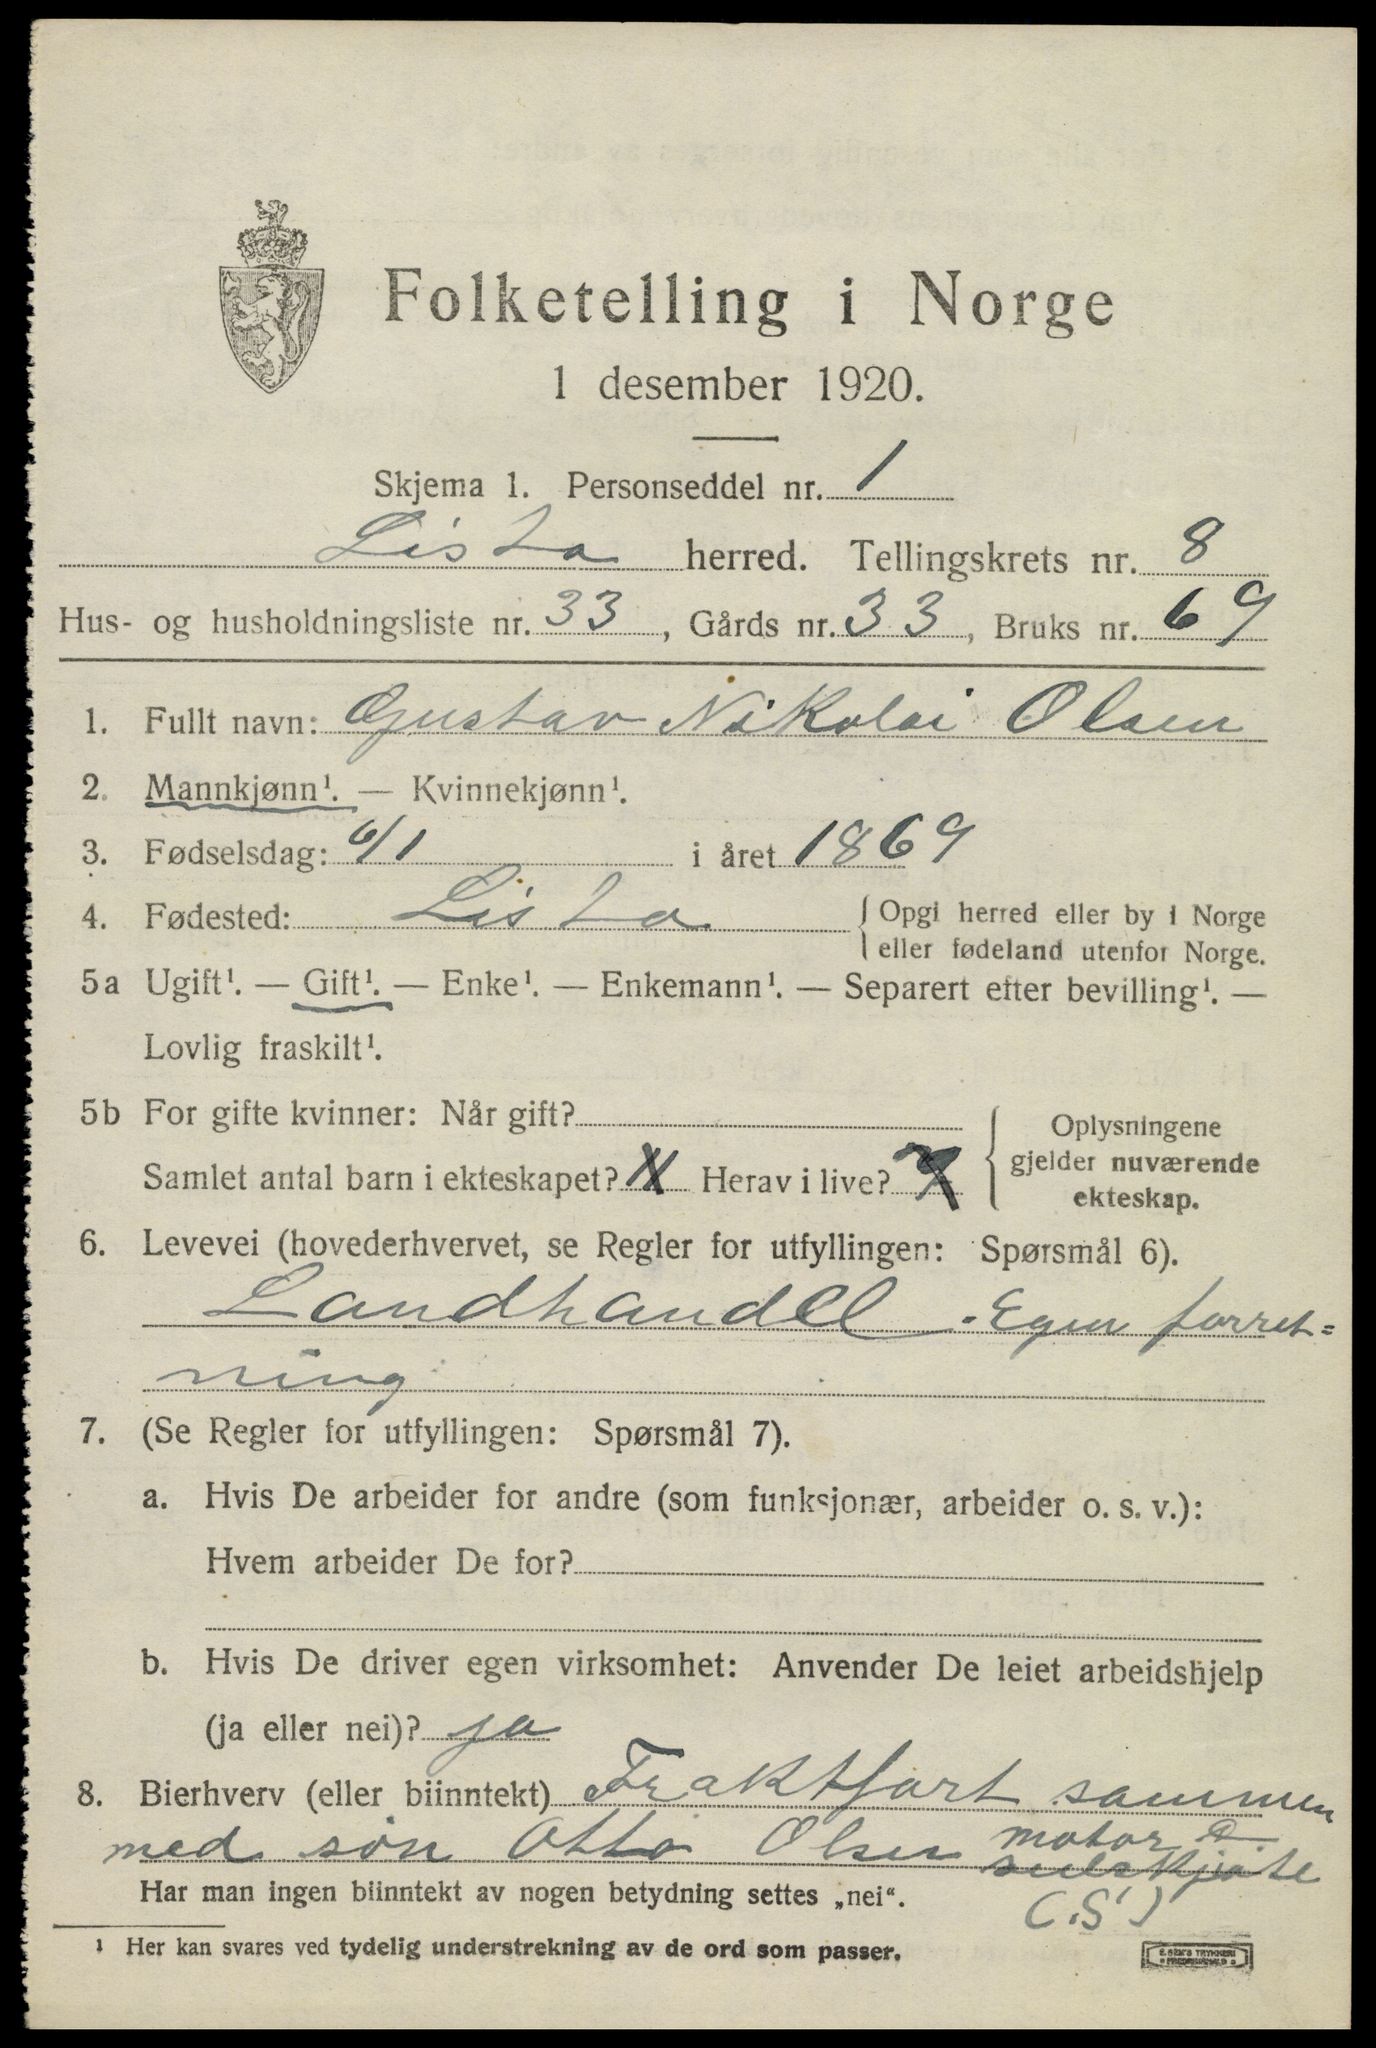 Folketelling i Norge
1 desember 1920.
Skjema 1. Personseddel nr. 1
Lista herred. Tellingskrets nr. 8
Hus- og husholdningsliste nr. 33, Gårds nr. 33, Bruks nr. 69
1. Fullt navn: Gustav Nikolai Olsen
2. Mannkjønn¹. — Kvinnekjønn¹.
3. Fødselsdag: 6/1 i året 1869
4. Fødested: Lista { Opgi herred eller by i Norge
eller fødeland utenfor Norge.
5a Ugift¹. — Gift¹. — Enke¹. — Enkemann¹. — Separert efter bevilling¹. —
Lovlig fraskilt¹.
5b For gifte kvinner: Når gift?
Samlet antal barn i ekteskapet? Herav i live?
Oplysningene
gjelder nuværende
ekteskap.
6. Levevei (hovederhvervet, se Regler for utfyllingen: Spørsmål 6).
Landhandel. Egen forret=
ning
7. (Se Regler for utfyllingen: Spørsmål 7).
a. Hvis De arbeider for andre (som funksjonær, arbeider o. s. v.):
Hvem arbeider De for?
b. Hvis De driver egen virksomhet: Anvender De leiet arbeidshjelp
(ja eller nei)? ja
8. Bierhverv (eller biinntekt) Fraktfart sammen
med søn Otto Olsen motor
(S)
Har man ingen biinntekt av nogen betydning settes „nei“.
¹ Her kan svares ved tydelig understrekning av de ord som passer.